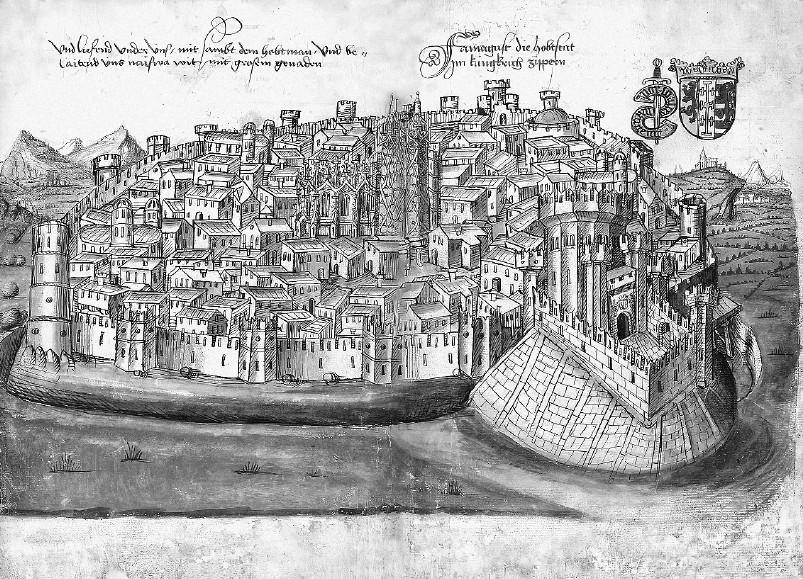 Und liesend under uns / mit sambt dem hobtman / Und be=
laitend uns wit / mit grosem genaden
Famagust die hobtstat
im kungkrich zippern